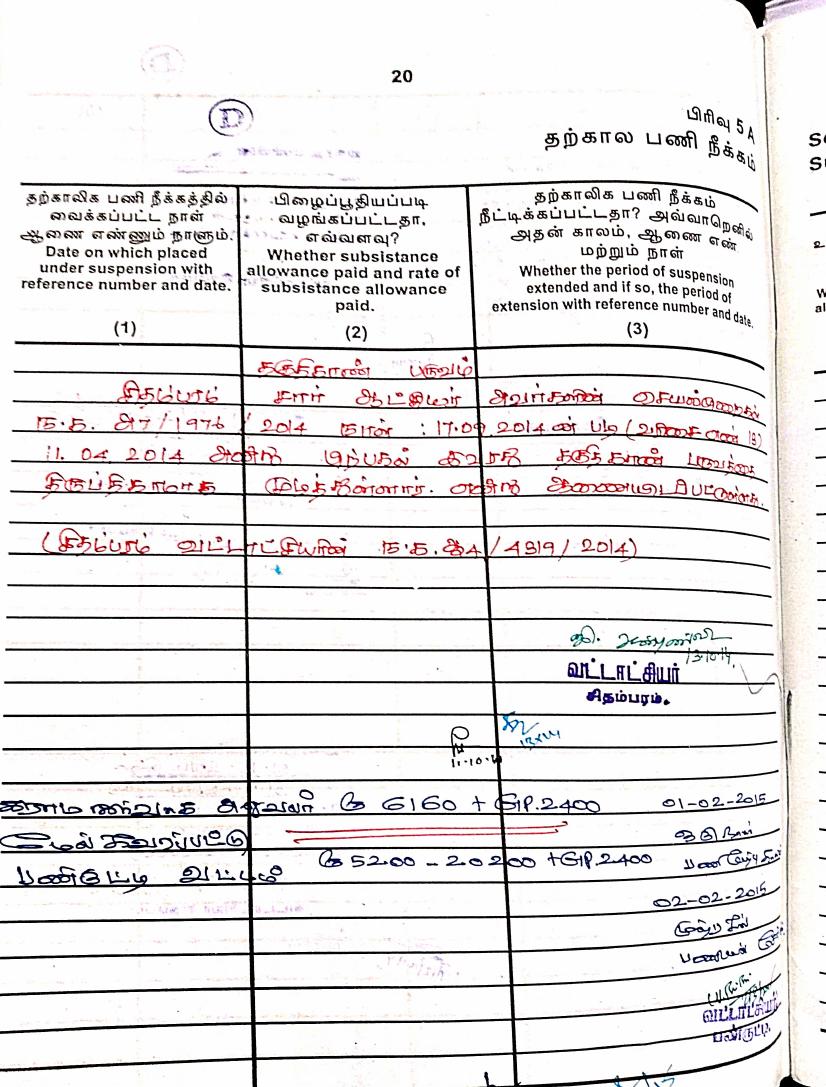 20
D
பிரிவு 5 A
தற்கால பணி நீக்கம்
தற்காலிக பணி நீக்கத்தில்
வைக்கப்பட்ட நாள்
ஆணை எண்ணும் நாளும்.
Date on which placed
under suspension with
reference number and date.
(1)
பிழைப்பூதியப்படி
வழங்கப்பட்டதா,
எவ்வளவு?
Whether subsistance
allowance paid and rate of
subsistance allowance
paid.
(2)
தற்காலிக பணி நீக்கம்
நீட்டிக்கப்பட்டதா? அவ்வாறெனில்
அதன் காலம், ஆணை எண்
மற்றும் நாள்
Whether the period of suspension
extended and if so, the period of
extension with reference number and date.
(3)
தகுதிகாண் பருவம்
சிதம்பரம் சார் ஆட்சியர் அவர்களின் செயல்முறைகள்
ந.க. அ7/1976/2014 நாள் : 17.09.2014 ன் படி (வரிசை எண் 13)
11.04.2014 அன்று பிற்பகல் தகுதிகாண் பருவத்தை
திருப்திகரமாக முடித்துள்ளார். என்று ஆணையிடப்பட்டுள்ளது.
(சிதம்பரம் வட்டாட்சியரின் ந.க.அ4/4319/2014)
13.10.14.
வட்டாட்சியர்
சிதம்பரம்.
11-10-14
கிராம நிர்வாக அலுவலர் ரூ 6160 + GP.2400 01-02-2015
மேல் கவரப்பட்டு
பண்ருட்டி வட்டம் ரூ 5200 - 20200 + GP.2400
02-02-2015
முற்பகல்
வட்டாட்சியர்
பண்ருட்டி.